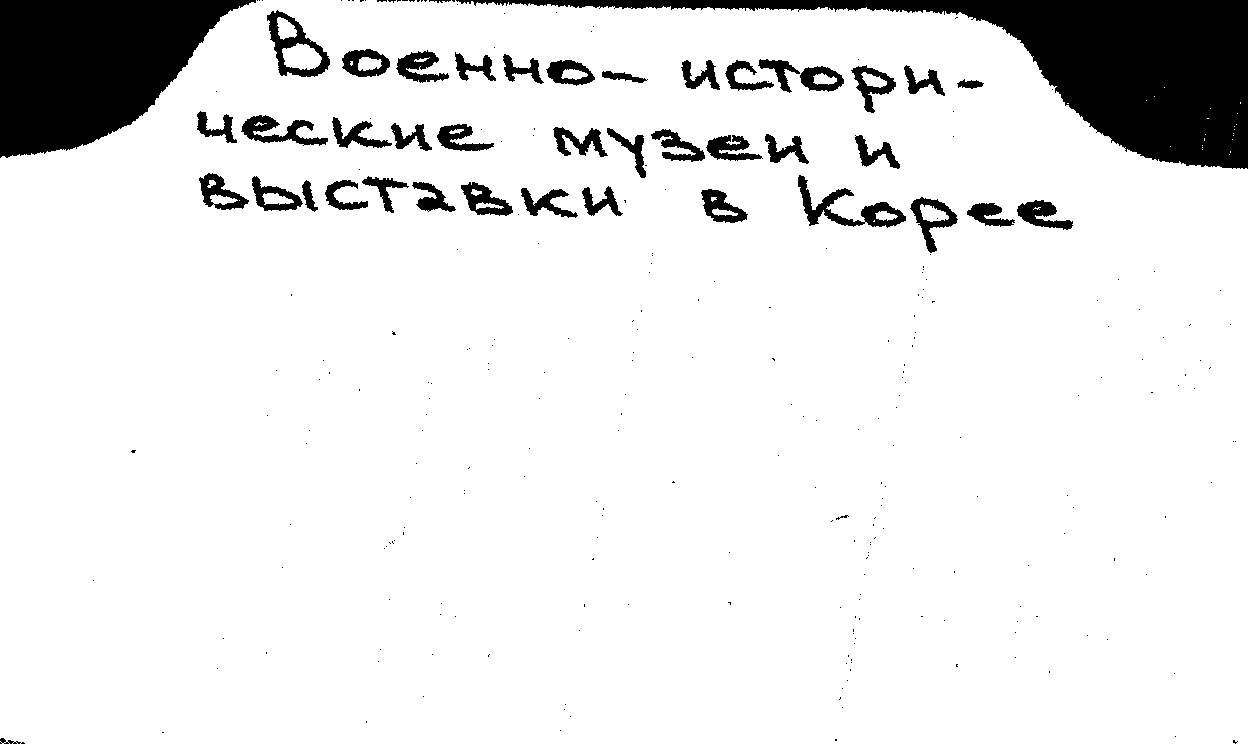 Военно-истори-
ческие музеи и
выставки в Корее